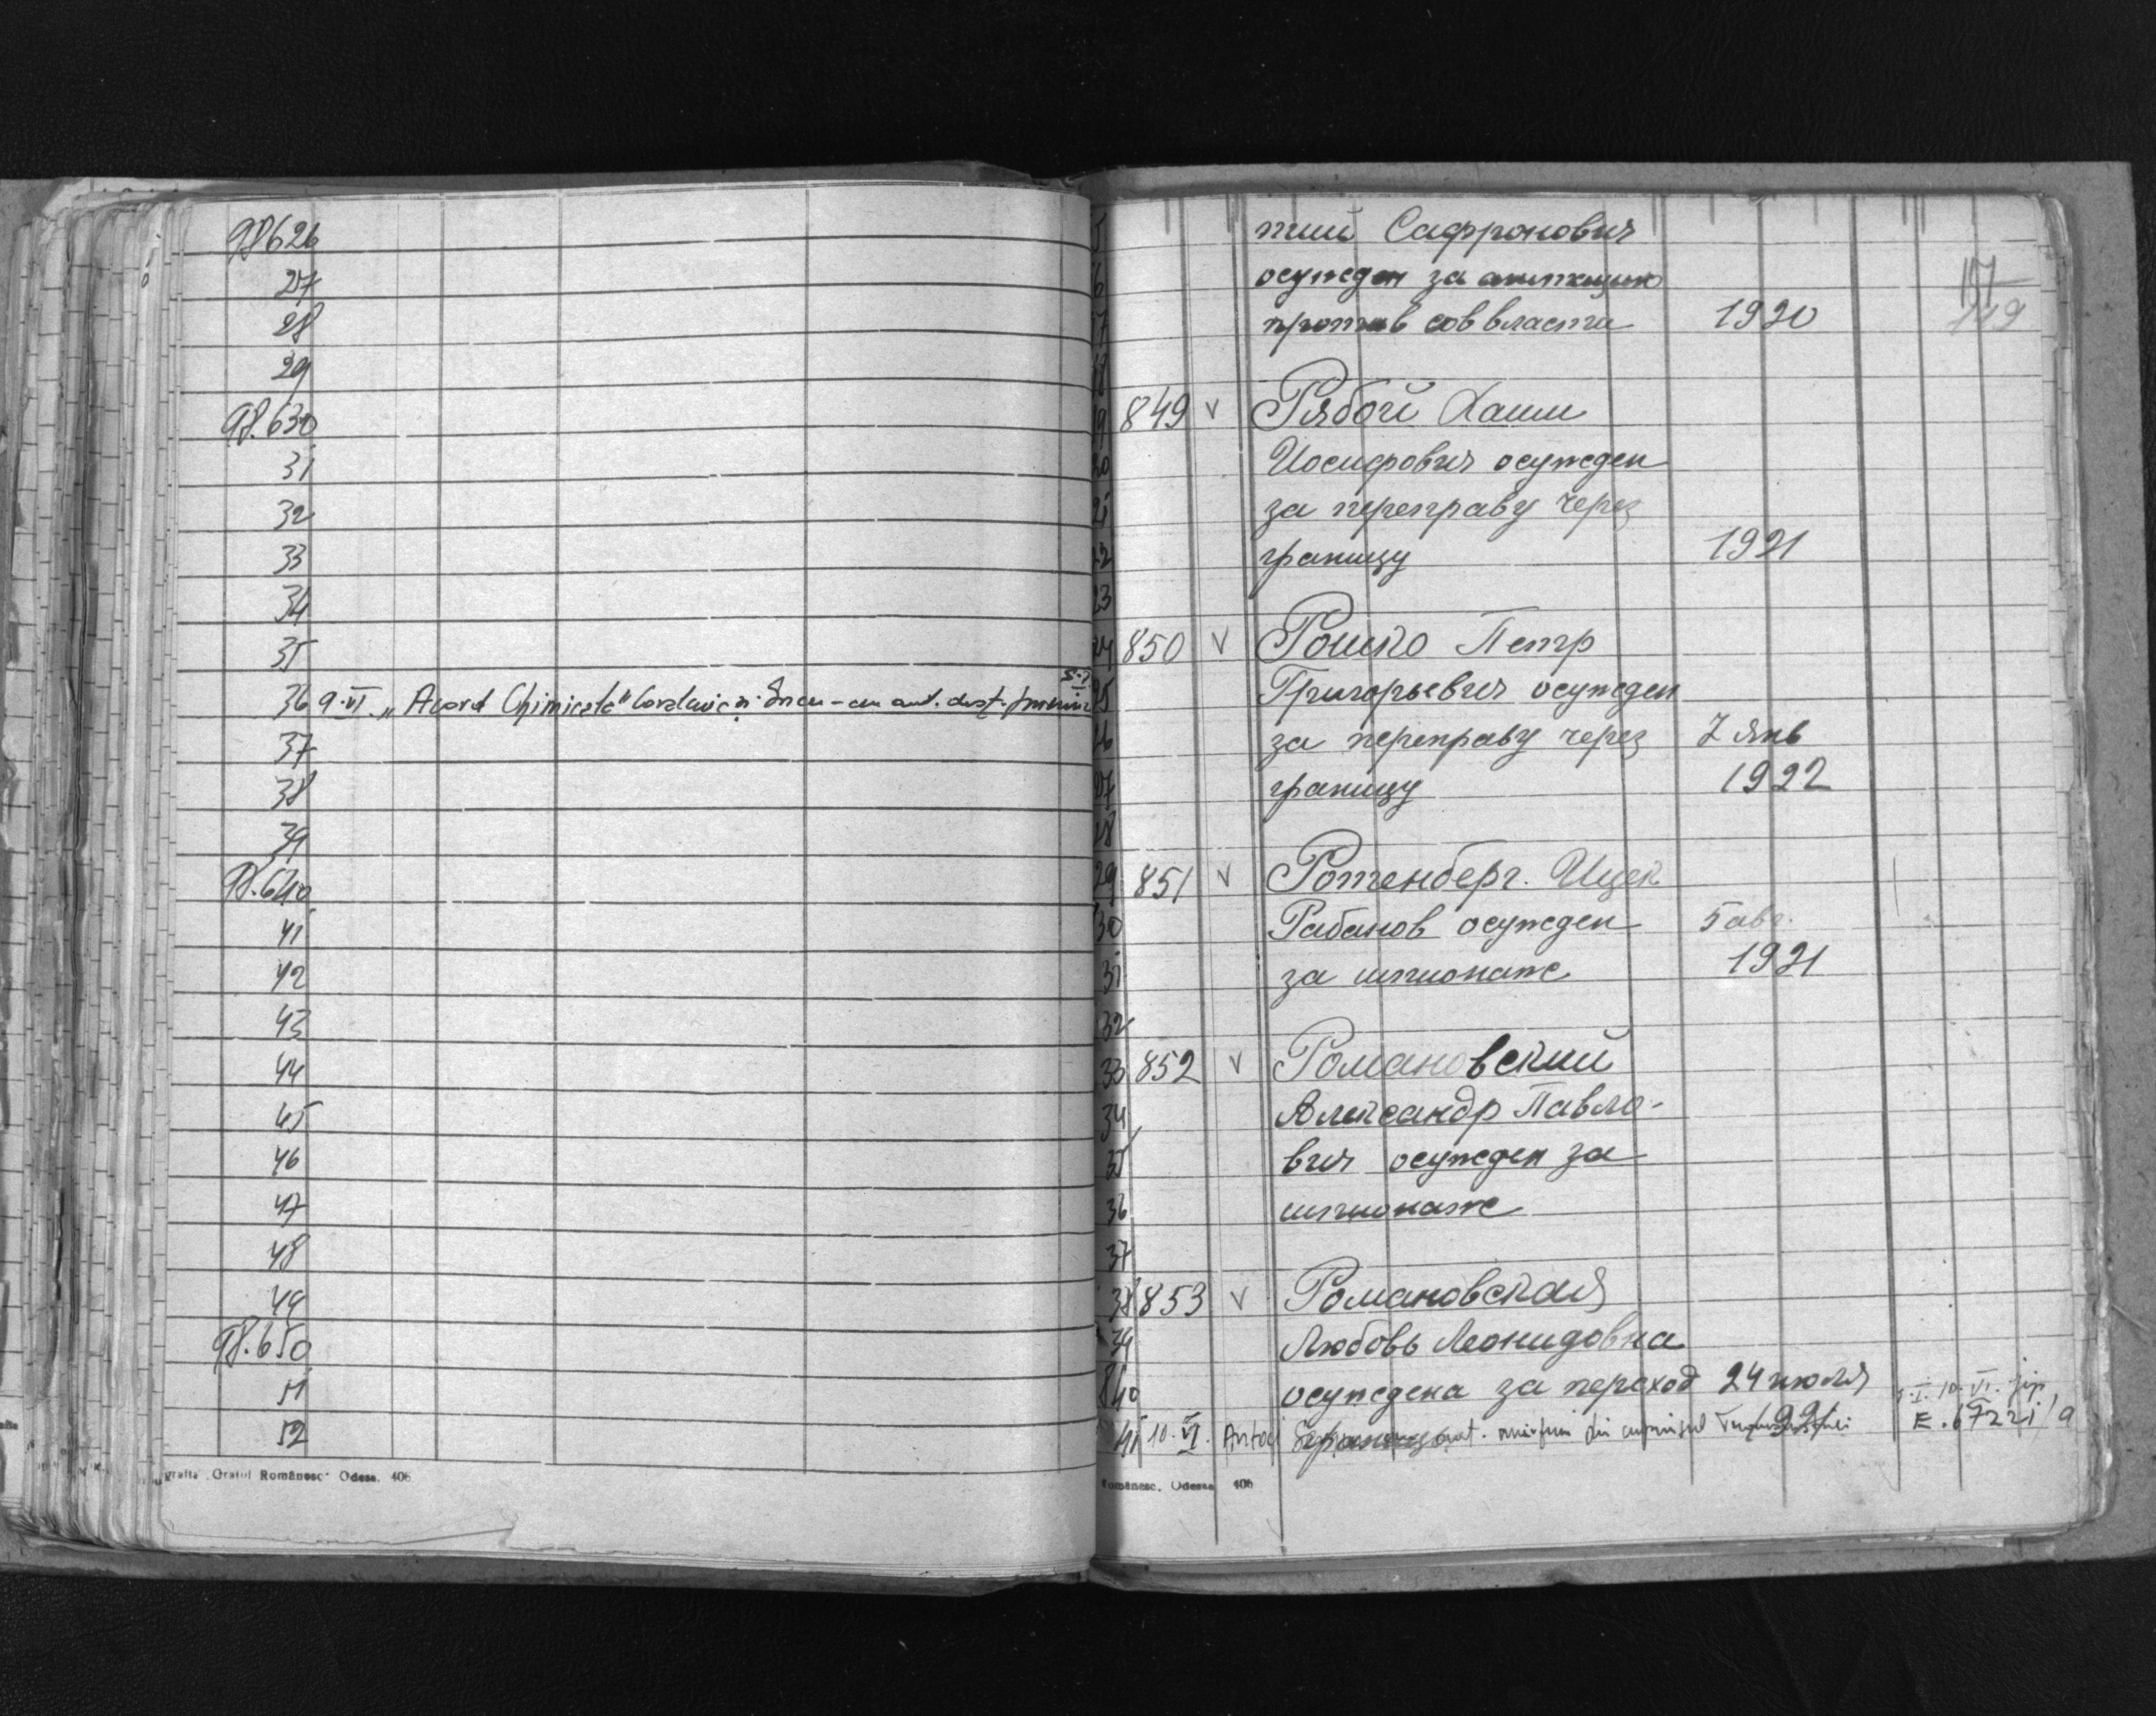 98626
27
28
29
98.630
31
32
33
34
35
36 9.VI. „Acord Chimicale"
37
38
39
98.640
41
42
43
44
45
46
47
48
49
98.650
51
52
grafia „Graiul Românesc" Odesa. 406
тий Сафронович
осужден за агитацию
против соввласти 1920
119
849 v Рябой Хаим
Иосифович осужден
за переправу через
границу 1921
850 v Рошко Петр
Григорьевич осужден
за переправу через 7 янв
границу 1922
851 v Ротенберг. Ицек
Рабанов осужден 5 авг.
за шпионаж 1921
852 v Романовский
Александр Павло-
вич осужден за
шпионаж
853 v Романовская
Любовь Леонидовна
осуждена за переход 24 июля
41 10.VI. границу 1921
Românesc. Odessa 406